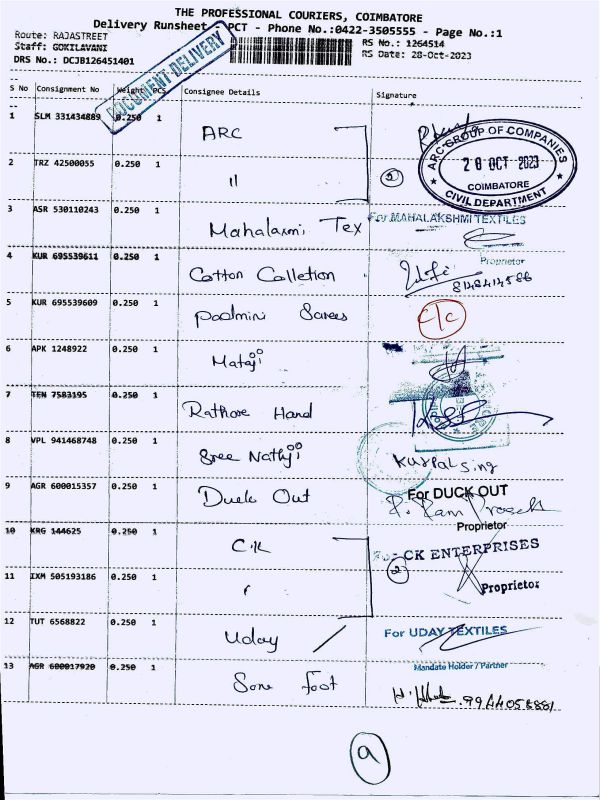 THE PROFESSIONAL COURIERS, COIMBATORE
Delivery Runsheet - PCT - Phone No.:0422-3505555 - Page No.:1
Route: RAJASTREET
Staff: GOKILAVANI
RS No.: 1264514
DRS No.: DCJB126451401
RS Date: 28-Oct-2023
DOCUMENT DELIVERY
S No Consignment No Weight PCS Consignee Details Signature
1 SLM 331434889 0.250 1 ARC
ARC GROUP OF COMPANIES
28 OCT 2023
COIMBATORE
CIVIL DEPARTMENT
2 TRZ 42500055 0.250 1 11 2
3 ASR 530110243 0.250 1 Mahalaxmi Tex
For MAHALAKSHMI TEXTILES
Proprietor
4 KUR 695539611 0.250 1 Cotton Calletion
8148414586
5 KUR 695539609 0.250 1 Padmini Sarees C/C
6 APK 1248922 0.250 1 Mataji
7 TEN 7583195 0.250 1 Rathore Hand
8 VPL 941468748 0.250 1 Sree Nathji
Kurpal Sing
9 AGR 600015357 0.250 1 Duck Out
For DUCK OUT
Proprietor
10 KRG 144625 0.250 1 C.K
For CK ENTERPRISES
2
Proprietor
11 IXM 505193186 0.250 1
12 TUT 6568822 0.250 1 Uday /
For UDAY TEXTILES
Mandate Holder / Partner
13 AGR 600017920 0.250 1 Sone foot
9